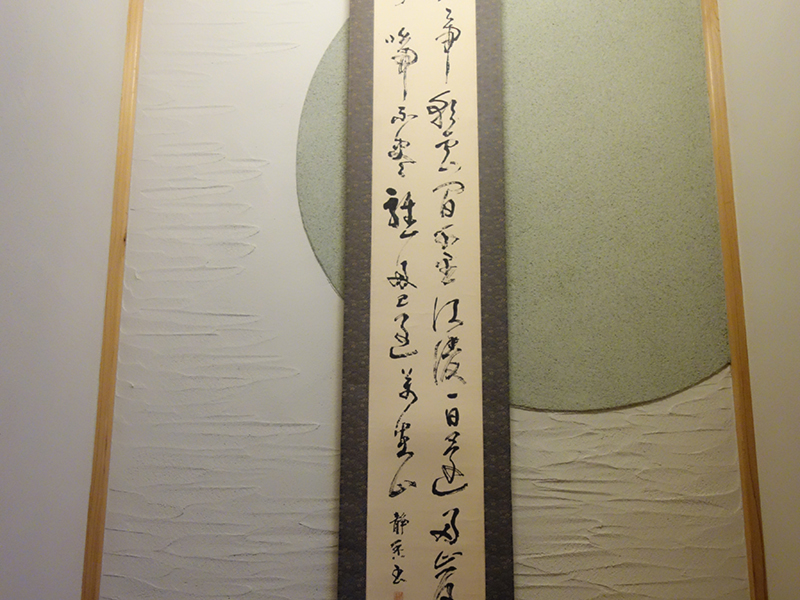 帝彩雲間千里江陵一日還兩岸
啼不盡輕舟已過萬重山 静書